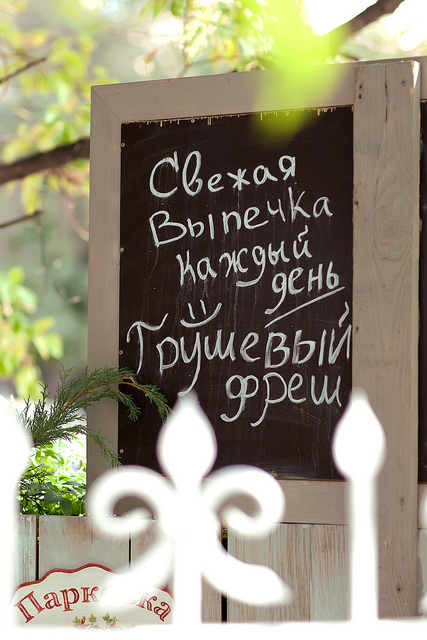 Свежая
Выпечка
каждый
день
Грушевый
фреш